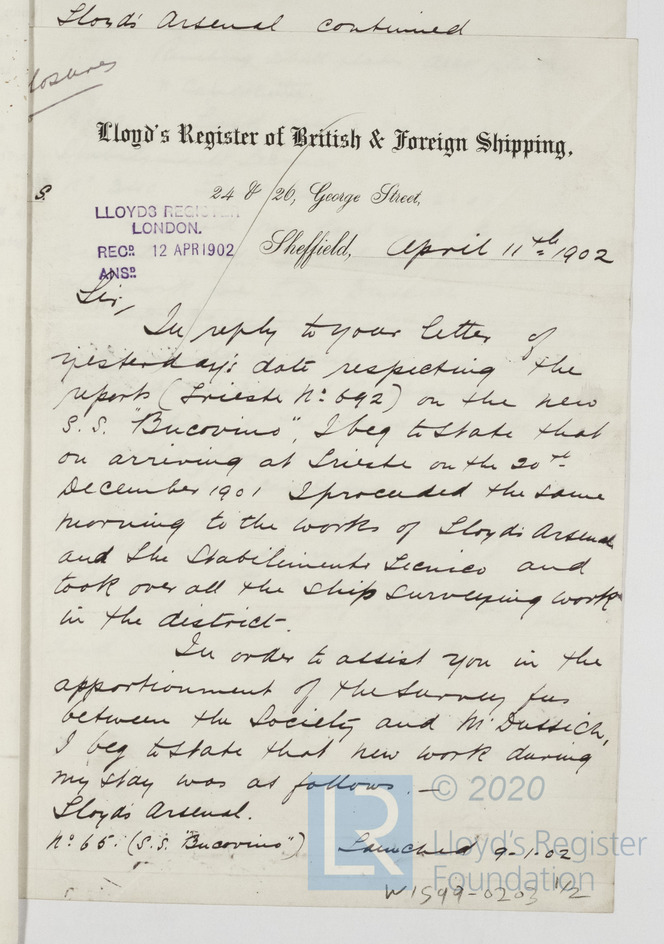 Lloyds Arsenal continued
losures
Lloyd's Register of British & Foreign Shipping,
24 & 26, George Street,
S.
LLOYDS REGISTER
LONDON.
RECD. 12 APR 1902
ANSD.
Sheffield, April 11th 1902
Sir,
In reply to your letter of
yesterday's date respecting the
reports (Trieste No. 692) on the new
S.S. "Bucovino", I beg to state that
on arriving at Trieste on the 20th
December 1901 I proceeded the same
morning to the works of Lloyds Arsenal
and the Stabilimento Tecnico and
took over all the ship surveying work
in the district.
In order to assist you in the
apportionment of the survey fees
between the Society and Mr Dussich,
I beg to state that new work during
my stay was as follows. —
Lloyds Arsenal.
No. 65. (S.S. "Bucovino") Launched 9-1-02
LR © 2020
Lloyd's Register
Foundation
W1599-0203 1/2